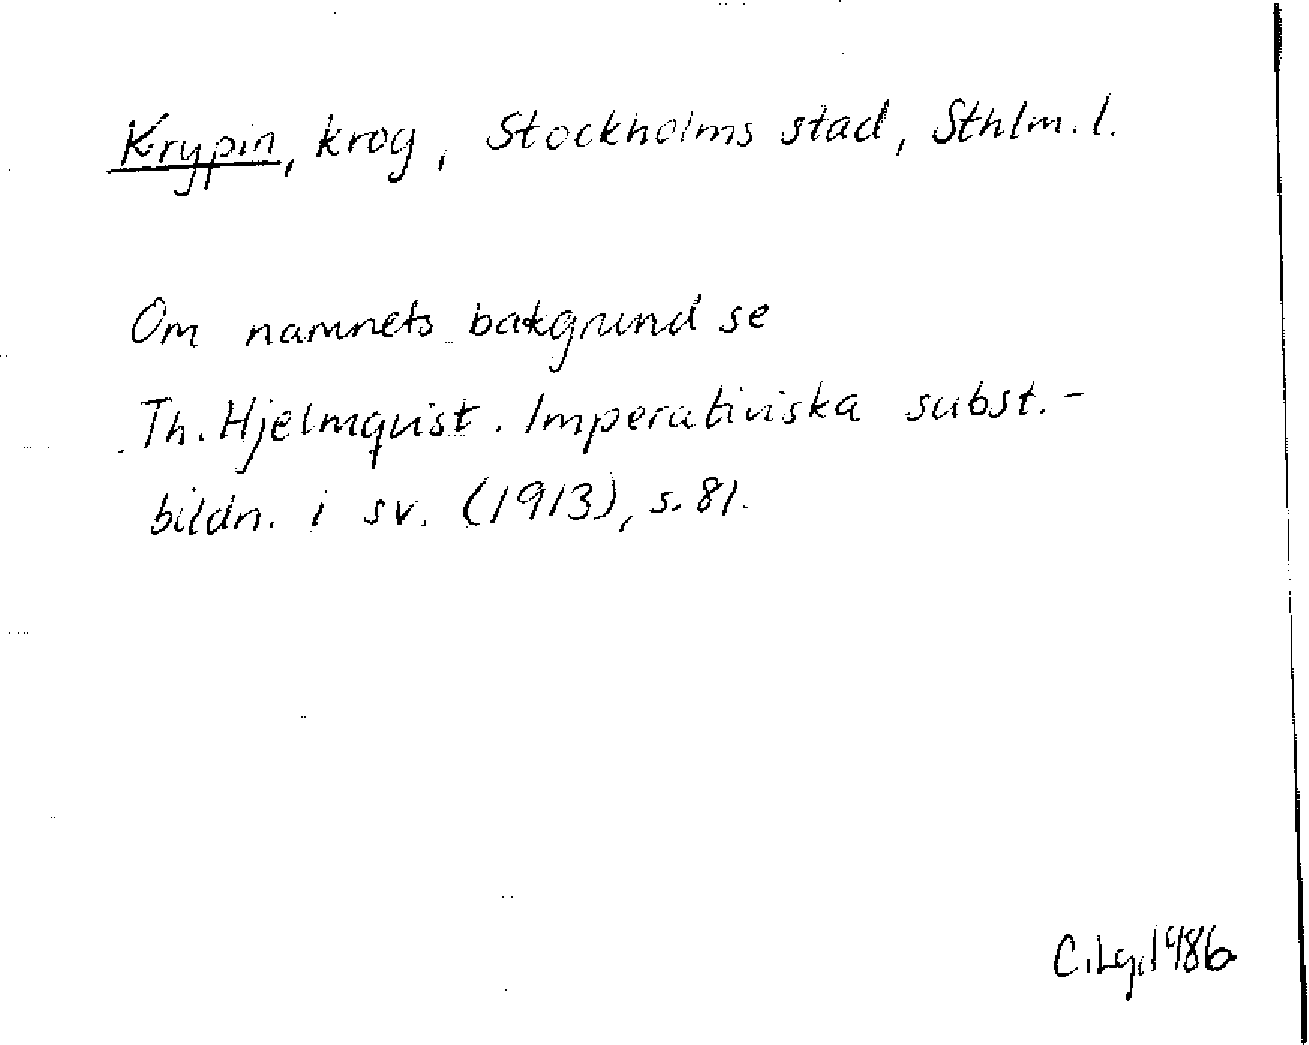 Krypin, krog, Stockholms stad, Sthlm. l.
Om namnets bakgrund se
Th. Hjelmqvist. Imperativiska subst.-
bildn. i sv. (1913), s. 81.
C. Lg. 1986